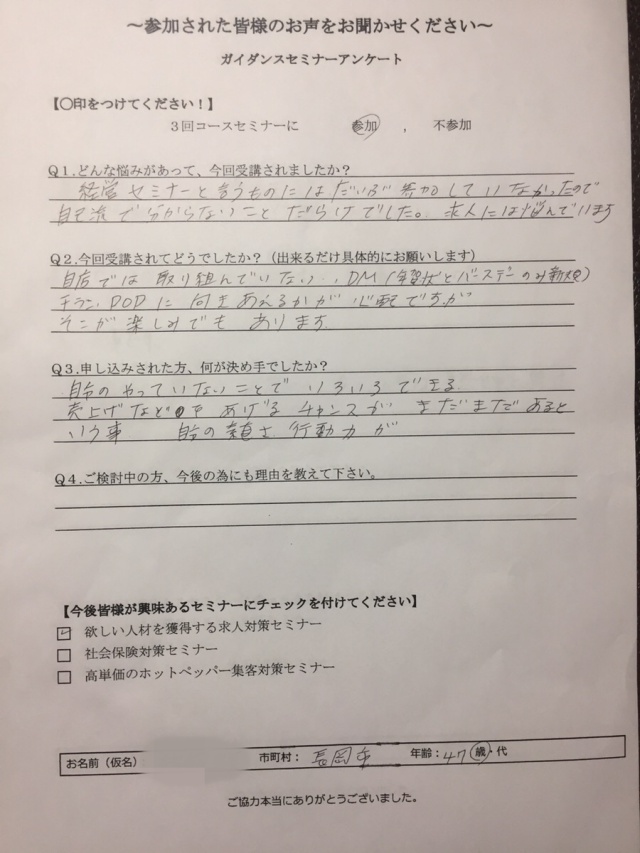 ～参加された皆様のお声をお聞かせください～
ガイダンスセミナーアンケート
【〇印をつけてください！】
３回コースセミナーに　参加　，　不参加
Ｑ１.どんな悩みがあって、今回受講されましたか？
経営セミナーと言うものにはだいぶ参加していなかったので
自己流で分からないことだらけでした。求人には悩んでいます
Ｑ２.今回受講されてどうでしたか？（出来るだけ具体的にお願いします）
自店では取り組んでいない、DM（年賀状とバースデーのみ
チラシ、POPに向きあえるかが心配ですが
そこが楽しみでもあります
Ｑ３.申し込みされた方、何が決め手でしたか？
自分のやっていないことでいろいろできる
売上げなどあげるチャンスがまだまだあると
いう事　自分の素直さ、行動力が
Ｑ４.ご検討中の方、今後の為にも理由を教えて下さい。
【今後皆様が興味あるセミナーにチェックを付けてください】
☑ 欲しい人材を獲得する求人対策セミナー
□ 社会保険対策セミナー
□ 高単価のホットペッパー集客対策セミナー
お名前（仮名）　市町村：長岡市　年齢：47歳・代
ご協力本当にありがとうございました。